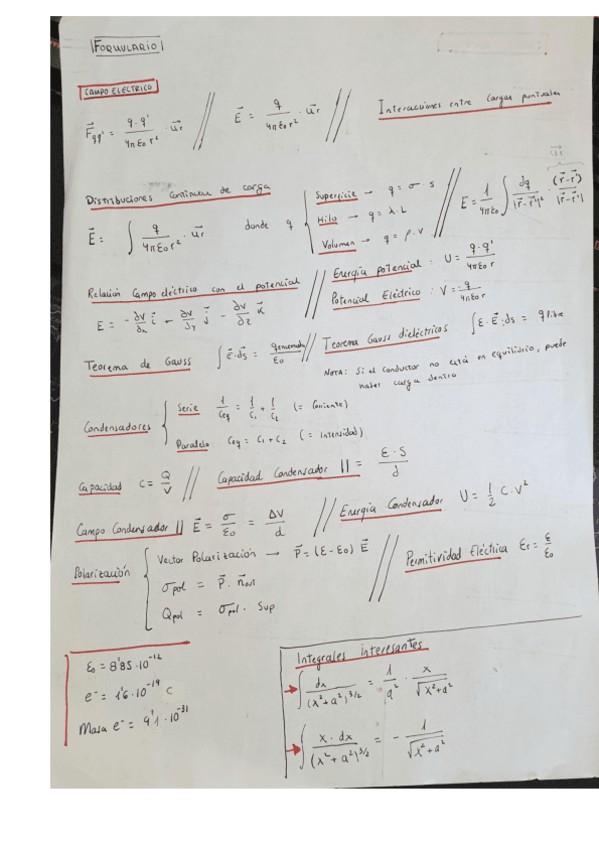 FORMULARIO
CAMPO ELÉCTRICO
F⃗qq' = q·q' / 4πε₀r² · u⃗r // E⃗ = q / 4πε₀r² · u⃗r // Interacciones entre cargas puntuales
Distribuciones continuas de carga
E⃗ = ∫ q / 4πε₀r² · u⃗r donde q { Superficie → q = σ · S
Hilo → q = λ · L
Volumen → q = ρ · V
// E = 1/4πε₀ ∫ dq / |r⃗-r⃗'|² (r⃗-r⃗') / |r⃗-r⃗'| u⃗r
Relación Campo eléctrico con el potencial // Energía potencial : U = q·q' / 4πε₀r
E = - ∂V/∂x i⃗ - ∂V/∂y j⃗ - ∂V/∂z k⃗ Potencial Eléctrico : V = q / 4πε₀r
Teorema de Gauss ∫ E⃗·ds⃗ = / ε₀ // Teorema Gauss dieléctricos ∫ ε·E⃗·ds = q libre
NOTA: Si el conductor no está en equilibrio, puede
haber carga dentro
Condensadores { Serie 1/Ceq = 1/C₁ + 1/C₂ (= Corriente)
Paralelo Ceq = C₁ + C₂ (= intensidad)
Capacidad C = Q/V // Capacidad Condensador || = ε·S / d
Campo Condensador || E⃗ = σ/ε₀ = ΔV/d // Energía Condensador U = 1/2 C·V²
Polarización { Vector Polarización → P⃗ = (ε-ε₀) E⃗ // Permitividad Eléctrica εr = ε/ε₀
σpol = P⃗ · n⃗out
Qpol = σpol · Sup
ε₀ = 8'85·10⁻¹²
e⁻ = 1'6·10⁻¹⁹ C
Masa e⁻ = 9'1·10⁻³¹
Integrales interesantes
→ ∫ dx / (x²+a²)^3/2 = 1/a² · x / √(x²+a²)
→ ∫ x·dx / (x²+a²)^3/2 = - 1 / √(x²+a²)